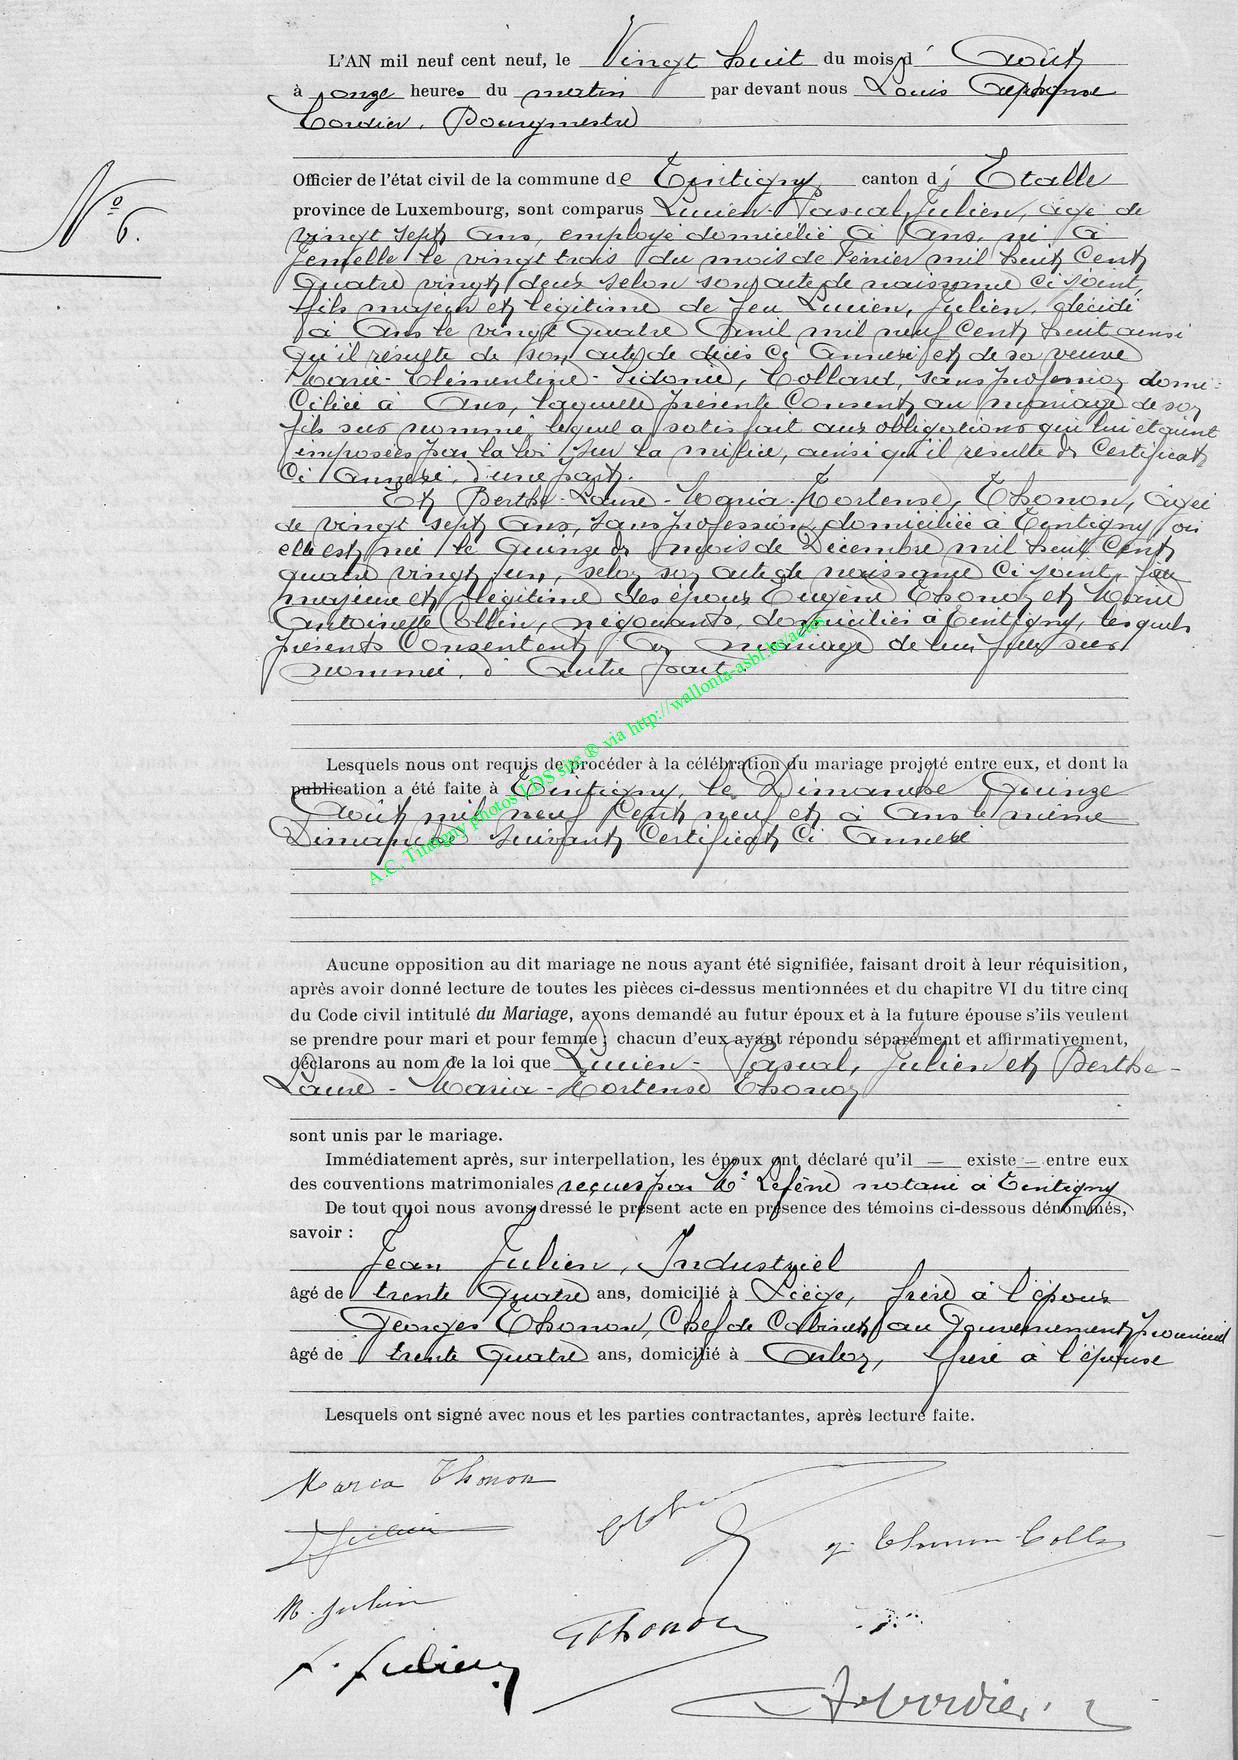 L'AN mil neuf cent neuf, le Vingt huit du mois d' Août
à onze heures du matin par devant nous Louis Alphonse
Cordier, Bourgmestre
Officier de l'état civil de la commune de Tintigny canton d' Etalle
N° 6.
province de Luxembourg, sont comparus Lucien-Pascal, Julien, âgé de
vingt sept ans, employé domicilié à Ans, né à
Jemelle le vingt trois du mois de Février mil huit cent
quatre vingt deux selon son acte de naissance ci joint,
fils majeur et légitime de feu Lucien, Julien, décédé
à Ans le vingt quatre Avril mil neuf cent huit ainsi
qu'il résulte de son acte de décès ci annexé et de sa veuve
Marie-Clémentine-Sidonie, Collard, sans profession domi-
ciliée à Ans, laquelle présente consent au mariage de son
fils sus nommé, lequel a satisfait aux obligations qui lui étaient
imposées par la loi sur la milice, ainsi qu'il résulte du certificat
ci annexé, d'une part.
Et Berthe-Laure-Maria-Hortense, Thonon, âgée
de vingt sept ans, sans profession, domiciliée à Tintigny où
elle est née le quinze du mois de Décembre mil huit cent
quatre vingt un, selon son acte de naissance ci joint, fille
majeure et légitime des époux Eugène Thonon et Marie
Antoinette Collin, négociants, domiciliés à Tintigny, lesquels
présents consentent au mariage de leur fille sus
nommée, d'autre part.
Lesquels nous ont requis de procéder à la célébration du mariage projeté entre eux, et dont la
publication a été faite à Tintigny, le Dimanche quinze
Août mil neuf cent neuf et à Ans le même
Dimanche suivant certificat ci annexé
A.C. Tintigny photos LDS site ® via http://wallonia-asbl.be/actes
Aucune opposition au dit mariage ne nous ayant été signifiée, faisant droit à leur réquisition,
après avoir donné lecture de toutes les pièces ci-dessus mentionnées et du chapitre VI du titre cinq
du Code civil intitulé du Mariage, avons demandé au futur époux et à la future épouse s'ils veulent
se prendre pour mari et pour femme; chacun d'eux ayant répondu séparément et affirmativement,
déclarons au nom de la loi que Lucien-Pascal, Julien et Berthe-
Laure-Maria-Hortense Thonon
sont unis par le mariage.
Immédiatement après, sur interpellation, les époux ont déclaré qu'il — existe — entre eux
des conventions matrimoniales reçues par Me Lefèvre notaire à Tintigny
De tout quoi nous avons dressé le présent acte en présence des témoins ci-dessous dénommés,
savoir :
Jean Julien, Industriel
âgé de trente quatre ans, domicilié à Liège, frère à l'époux
Georges Thonon, Chef de Cabinet au Gouvernement provincial
âgé de trente quatre ans, domicilié à Arlon, frère à l'épouse
Lesquels ont signé avec nous et les parties contractantes, après lecture faite.
Maria Thonon
Julien
Thonon-Collin
M. Julien
GThonon
J. Julien
ACordier